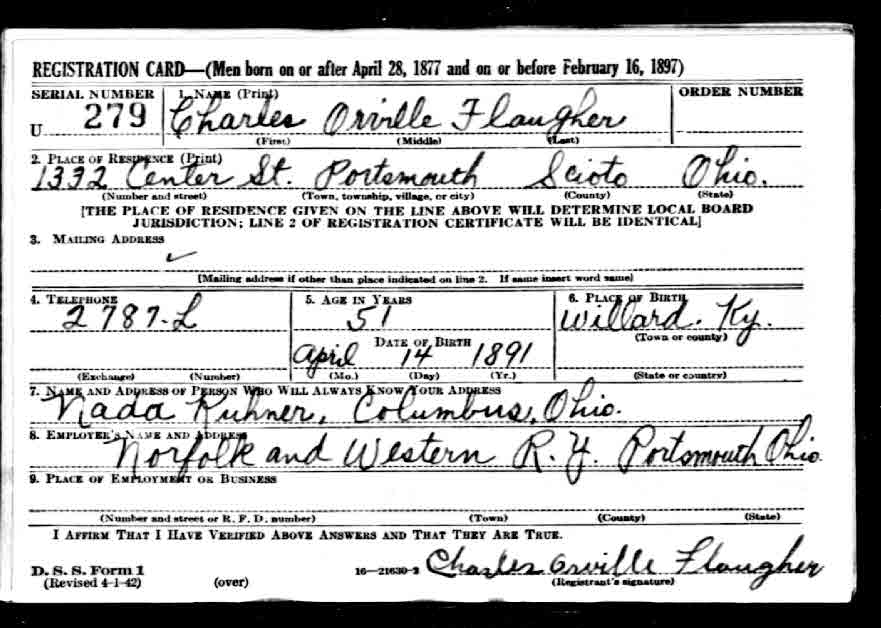 REGISTRATION CARD—(Men born on or after April 28, 1877 and on or before February 16, 1897)
SERIAL NUMBER 1. NAME (Print) ORDER NUMBER
U 279 Charles Orville Flaugher
(First) (Middle) (Last)
2. PLACE OF RESIDENCE (Print)
1332 Center St. Portsmouth Scioto Ohio.
(Number and street) (Town, township, village, or city) (County) (State)
[THE PLACE OF RESIDENCE GIVEN ON THE LINE ABOVE WILL DETERMINE LOCAL BOARD
JURISDICTION; LINE 2 OF REGISTRATION CERTIFICATE WILL BE IDENTICAL]
3. MAILING ADDRESS
[Mailing address if other than place indicated on line 2. If same insert word same]
4. TELEPHONE 5. AGE IN YEARS 6. PLACE OF BIRTH
2787-L 51 Willard. Ky.
DATE OF BIRTH (Town or county)
April 14 1891
(Exchange) (Number) (Mo.) (Day) (Yr.) (State or country)
7. NAME AND ADDRESS OF PERSON WHO WILL ALWAYS KNOW YOUR ADDRESS
Nada Kuhner, Columbus, Ohio.
8. EMPLOYER'S NAME AND ADDRESS
Norfolk and Western R.Y. Portsmouth Ohio.
9. PLACE OF EMPLOYMENT OR BUSINESS
(Number and street or R. F. D. number) (Town) (County) (State)
I AFFIRM THAT I HAVE VERIFIED ABOVE ANSWERS AND THAT THEY ARE TRUE.
D. S. S. Form 1 16—21630-2 Charles Orville Flaugher
(Revised 4-1-42) (over) (Registrant's signature)